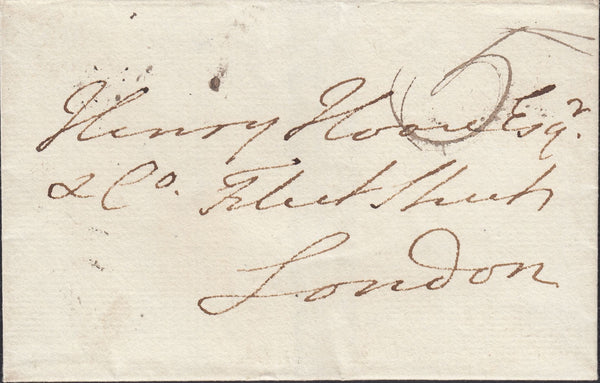 Henry Hoare Esqr.
& Co. Fleet Street
London
5